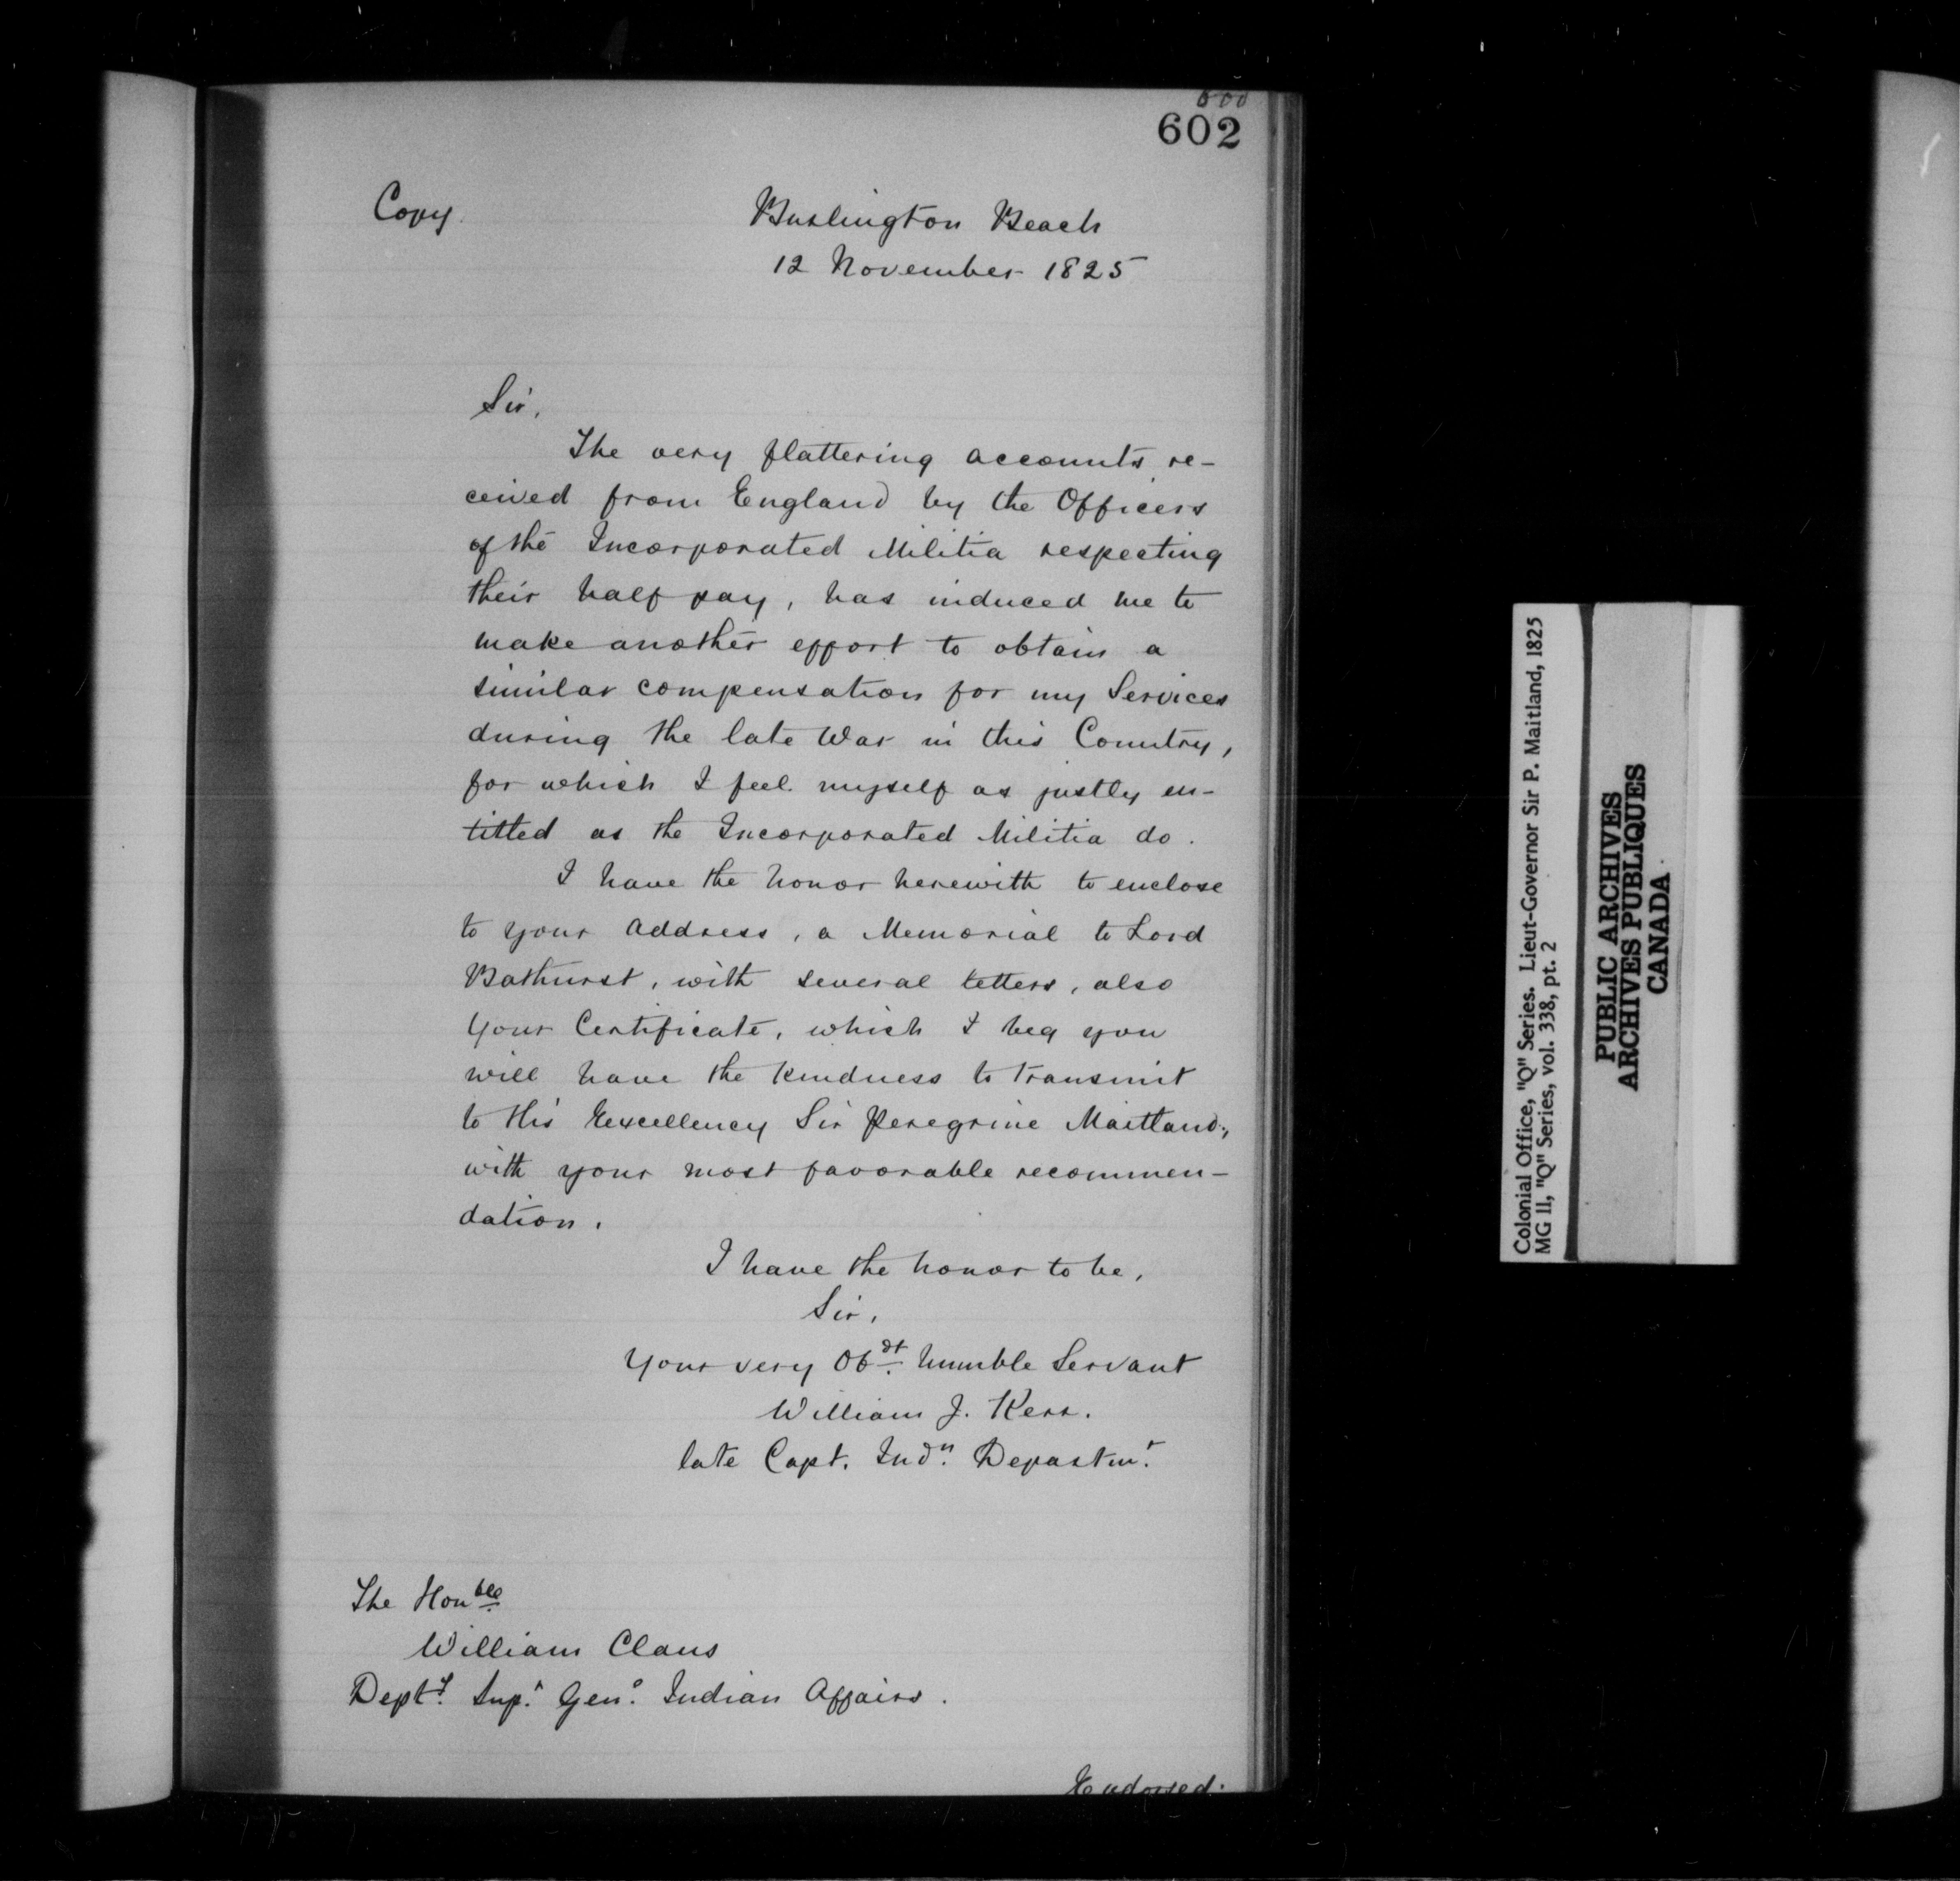 602
Copy.
Burlington Beach
12 November 1825
Sir,
The very flattering accounts re-
ceived from England by the Officers
of the Incorporated Militia respecting
their half pay, has induced me to
make another effort to obtain a
similar compensation for my Services
during the late War in this Country,
for which I feel myself as justly en-
titled as the Incorporated Militia do.
I have the honor herewith to enclose
to your address, a Memorial to Lord
Bathurst, with several letters, also
Your Certificate, which I beg you
will have the kindness to transmit
to His Excellency Sir Peregrine Maitland,
with your most favorable recommen-
dation.
I have the honor to be,
Sir,
Your very Obdt. humble Servant
William J. Kerr.
late Capt. Indn. Departmt.
The Honble.
William Claus
Depty. Supr. Genl. Indian Affairs.
Endorsed:
Colonial Office, "Q" Series. Lieut-Governor Sir P. Maitland, 1825
MG 11, "Q" Series, vol. 338, pt. 2
PUBLIC ARCHIVES
ARCHIVES PUBLIQUES
CANADA